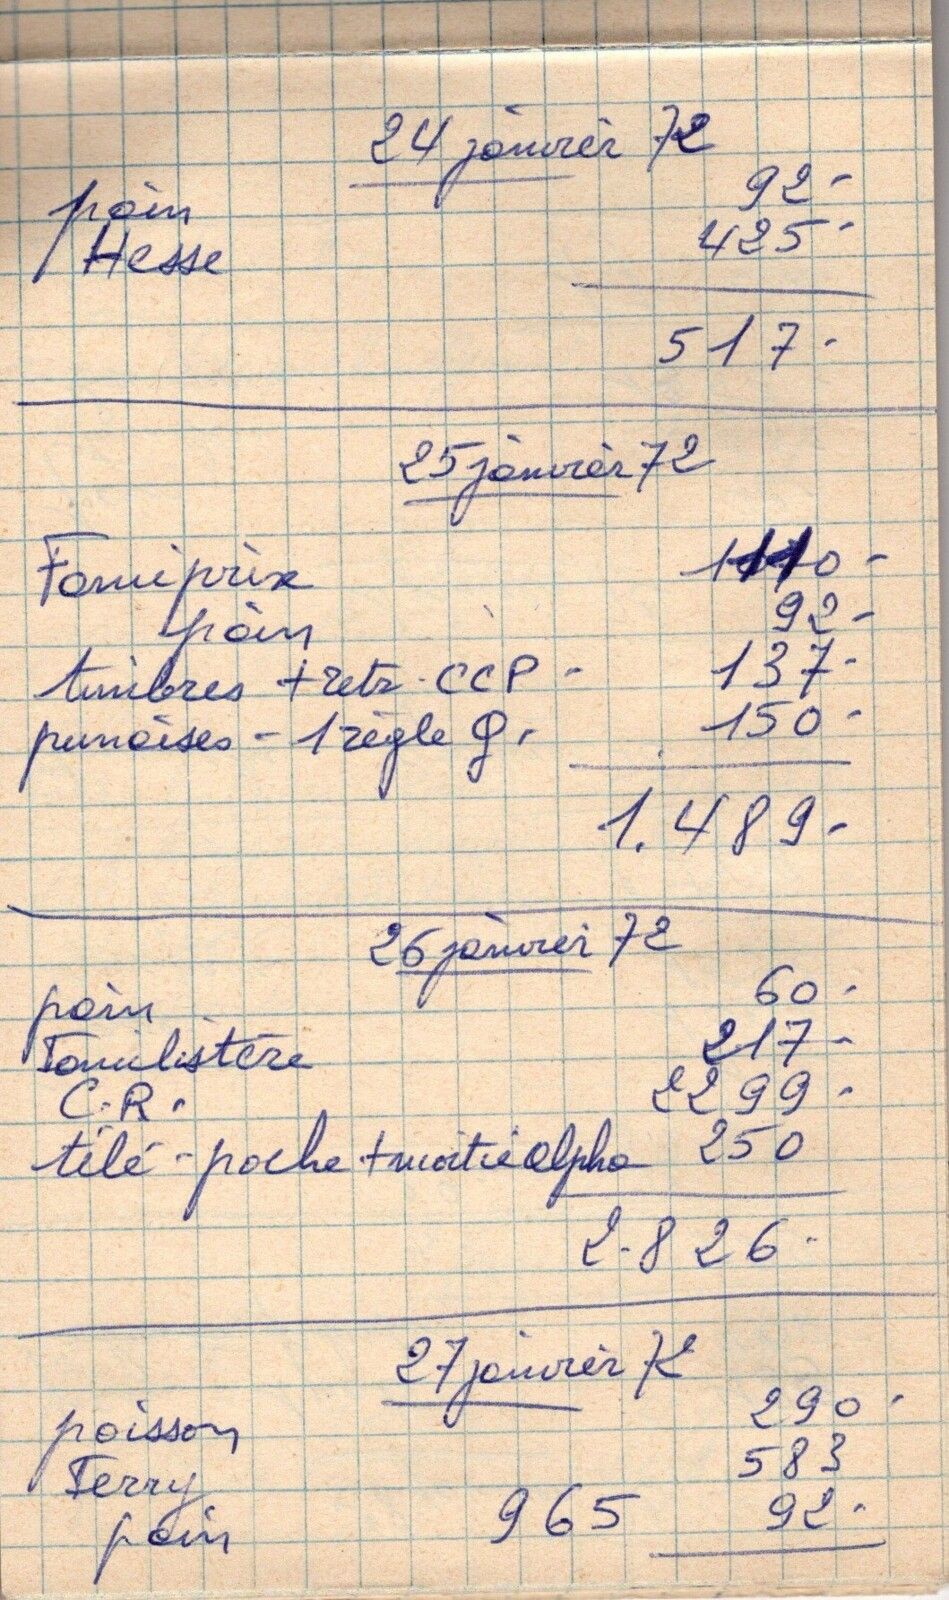 24 janvier 72
pain 92-
Hesse 425-
517-
25 janvier 72
Famiprix 1110-
pain 92-
timbres + retr. CCP - 137-
punaises - 1 règle 150-
1.489-
26 janvier 72
pain 60-
Familistère 217-
C.R. 2299-
télé-poche + moitié alpha 250
2.826-
27 janvier 72
poisson 290-
Ferry 583
pain 965 92-